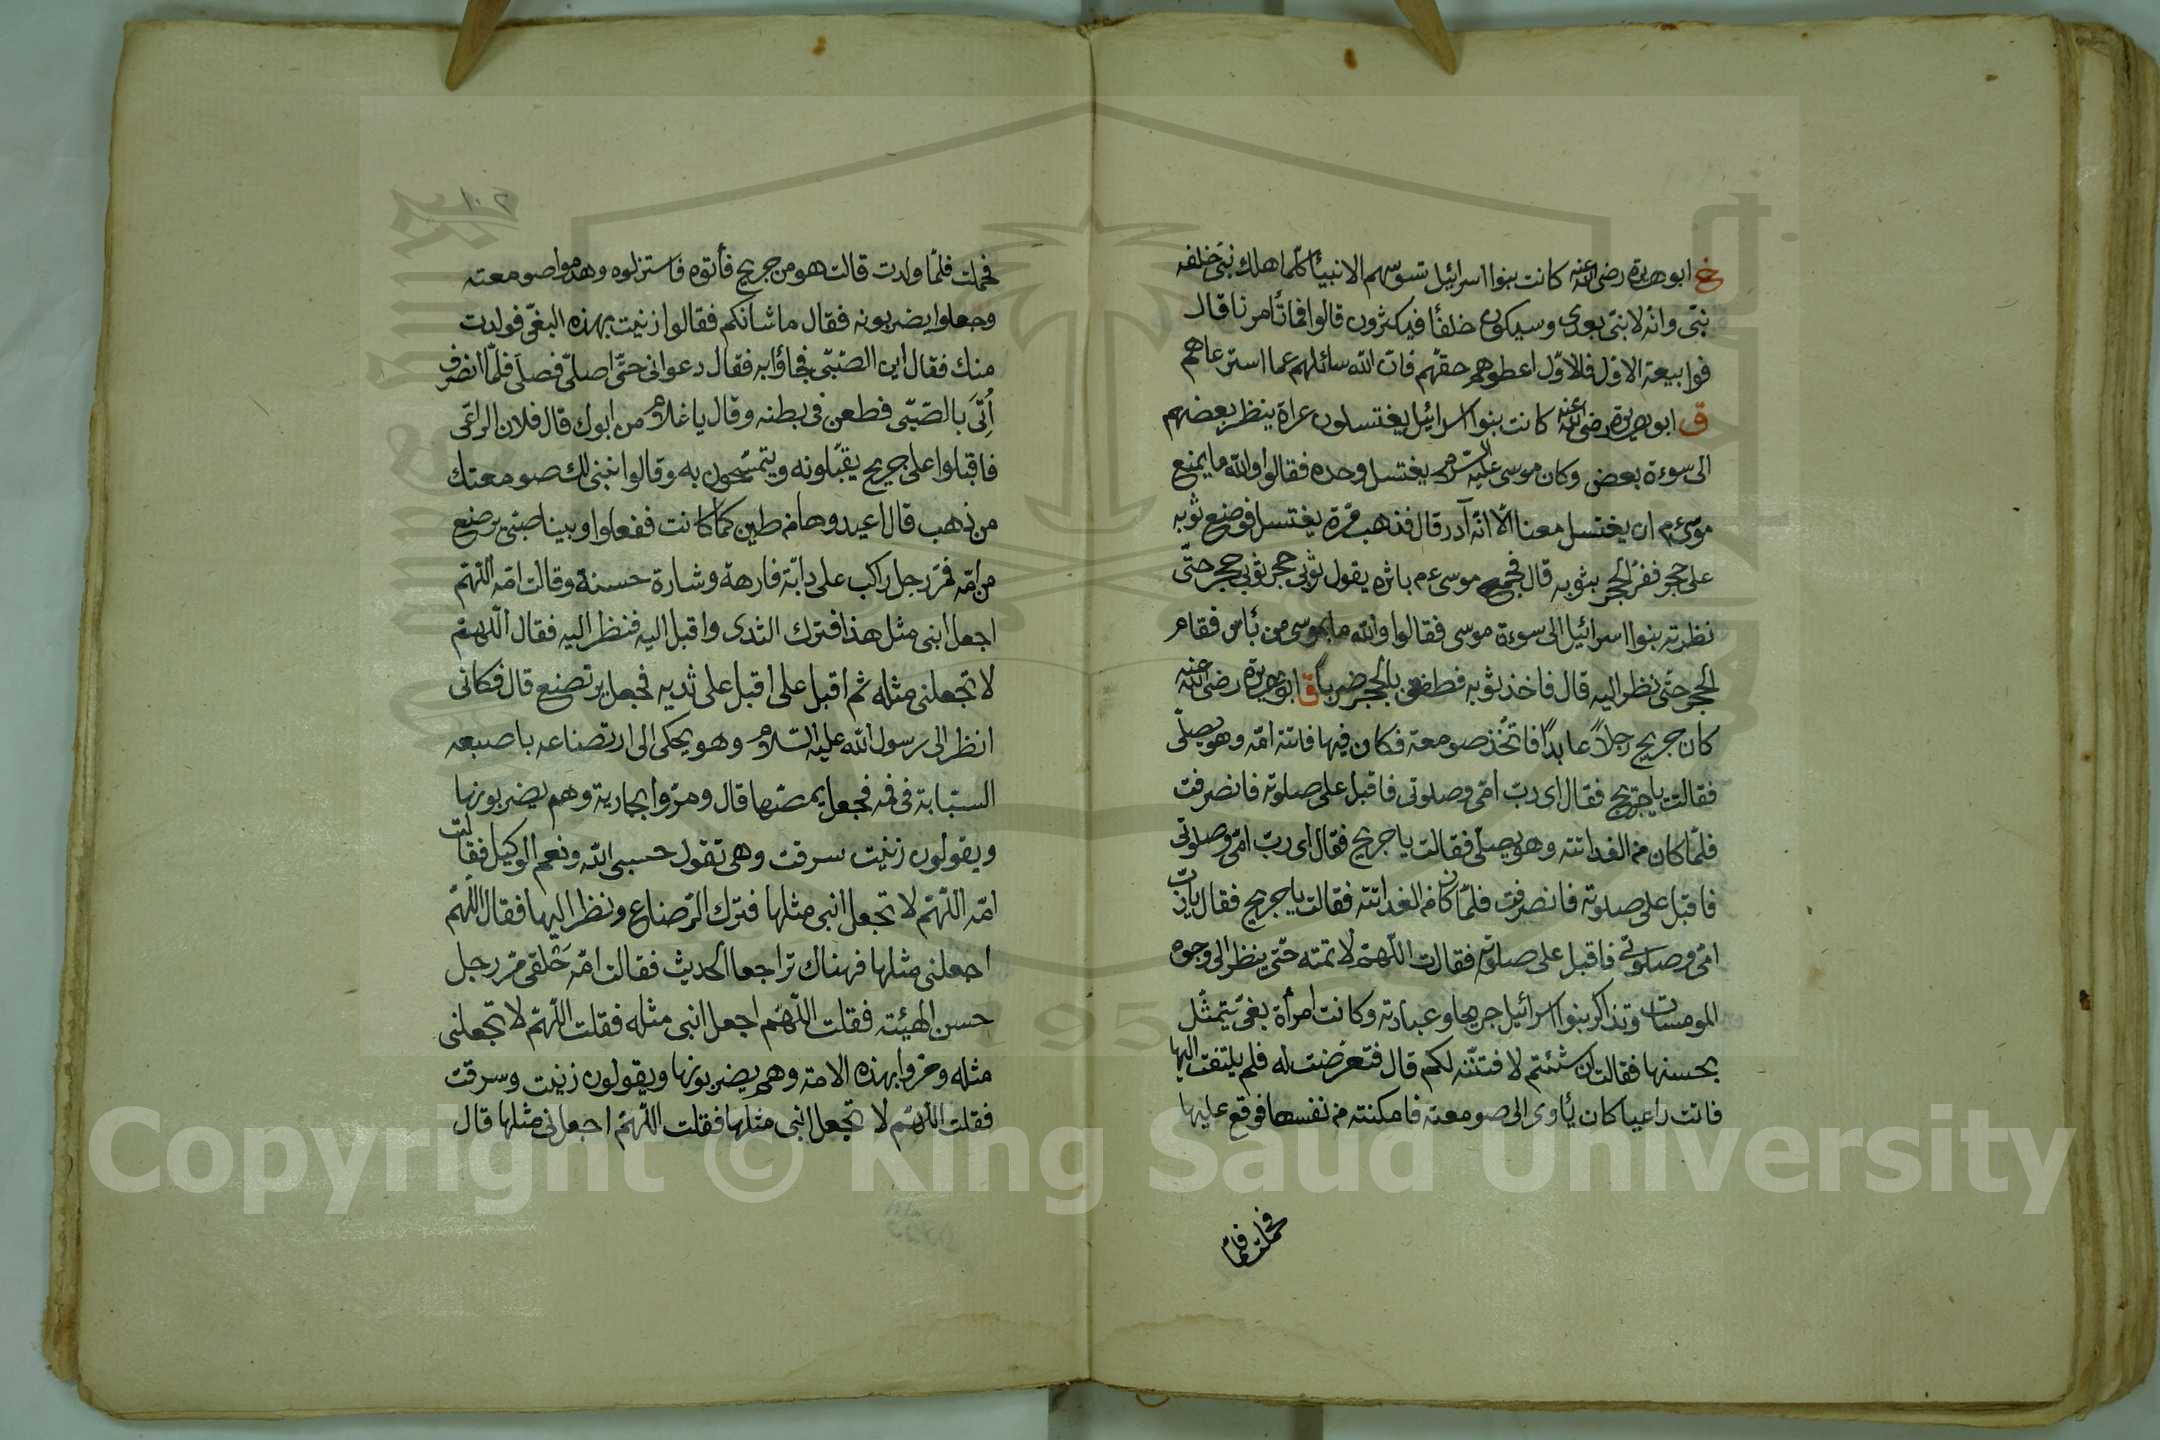 خ ابو هريرة رضى الله عنه كانت بنوا اسرائيل تسوسهم الانبياء كلما هلك نبى خلفه
نبى وانه لا نبى بعدى وسيكون خلفا فيكثرون قالوا فما تأمرنا قال
فوا بيعة الاول فالاول اعطوهم حقهم فان الله سائلهم عما استرعاهم
ق ابو هريرة رضى الله عنه كانت بنوا اسرائيل يغتسلون عراة ينظر بعضهم
الى سوءة بعض وكان موسى عليه السلام يغتسل وحده فقالوا والله ما يمنع
موسى ع م ان يغتسل معنا الا انه آدر قال فذهب مرة يغتسل فوضع ثوبه
على حجر ففر الحجر بثوبه قال فجمح موسى ع م باثره يقول ثوبى حجر ثوبى حجر حتى
نظرت بنوا اسرائيل الى سوءة موسى فقالوا والله ما بموسى من بأس فقام
الحجر حتى نظر اليه قال فاخذ ثوبه فطفق بالحجر ضربا ق ابو هريرة رضى الله عنه
كان جريج رجلا عابدا فاتخذ صومعة فكان فيها فاتته امه وهو يصلى
فقالت يا جريج فقال اى رب امى وصلوتى فاقبل على صلوته فانصرفت
فلما كان من الغد اتته وهو يصلى فقالت يا جريج فقال اى رب امى وصلوتى
فاقبل على صلوته فانصرفت فلما كان من الغد اتته فقالت يا جريج فقال يا رب
امى وصلوتى فاقبل على صلوته فقالت اللهم لا تمته حتى ينظر الى وجوه
المومسات وتذاكر بنوا اسرائيل جريجا وعبادته وكانت امرأة بغى يتمثل
بحسنها فقالت ان شئتم لافتننه لكم قال فتعرضت له فلم يلتفت اليها
فاتت راعيا كان يأوى الى صومعته فامكنته من نفسها فوقع عليها
فحملت فلما
١٠٢
فحملت فلما ولدت قالت هو من جريج فأتوه فاستنزلوه وهدموا صومعته
وجعلوا يضربونه فقال ما شانكم فقالوا زنيت بهذه البغى فولدت
منك فقال اين الصبى فجاؤا به فقال دعوانى حتى اصلى فصلى فلما انصرف
أتى بالصبى فطعن فى بطنه وقال يا غلام من ابوك قال فلان الراعى
فاقبلوا على جريج يقبلونه ويتمسحون به وقالوا نبنى لك صومعتك
من ذهب قال اعيدوها من طين كما كانت ففعلوا وبينا صبى يرضع
من امه فمر رجل راكب على دابة فارهة وشارة حسنة وقالت امه اللهم
اجعل ابنى مثل هذا فترك الثدى واقبل اليه فنظر اليه فقال اللهم
لا تجعلنى مثله ثم اقبل على اقبل على ثديه فجعل يرتضع قال فكانى
انظر الى رسول الله عليه السلام وهو يحكى الى ارتضاعه باصبعه
السبابة فى فمه فجعل يمصها قال ومروا بجارية وهم يضربونها
ويقولون زنيت سرقت وهى تقول حسبى الله ونعم الوكيل فقالت
امه اللهم لا تجعل ابنى مثلها فترك الرضاع ونظر اليها فقال اللهم
اجعلنى مثلها فهناك تراجعا الحديث فقالت امه حلقى مر رجل
حسن الهيئة فقلت اللهم اجعل ابنى مثله فقلت اللهم لا تجعلنى
مثله ومروا بهذه الامة وهم يضربونها ويقولون زنيت وسرقت
فقلت اللهم لا تجعل ابنى مثلها فقلت اللهم اجعلنى مثلها قال
Copyright © King Saud University